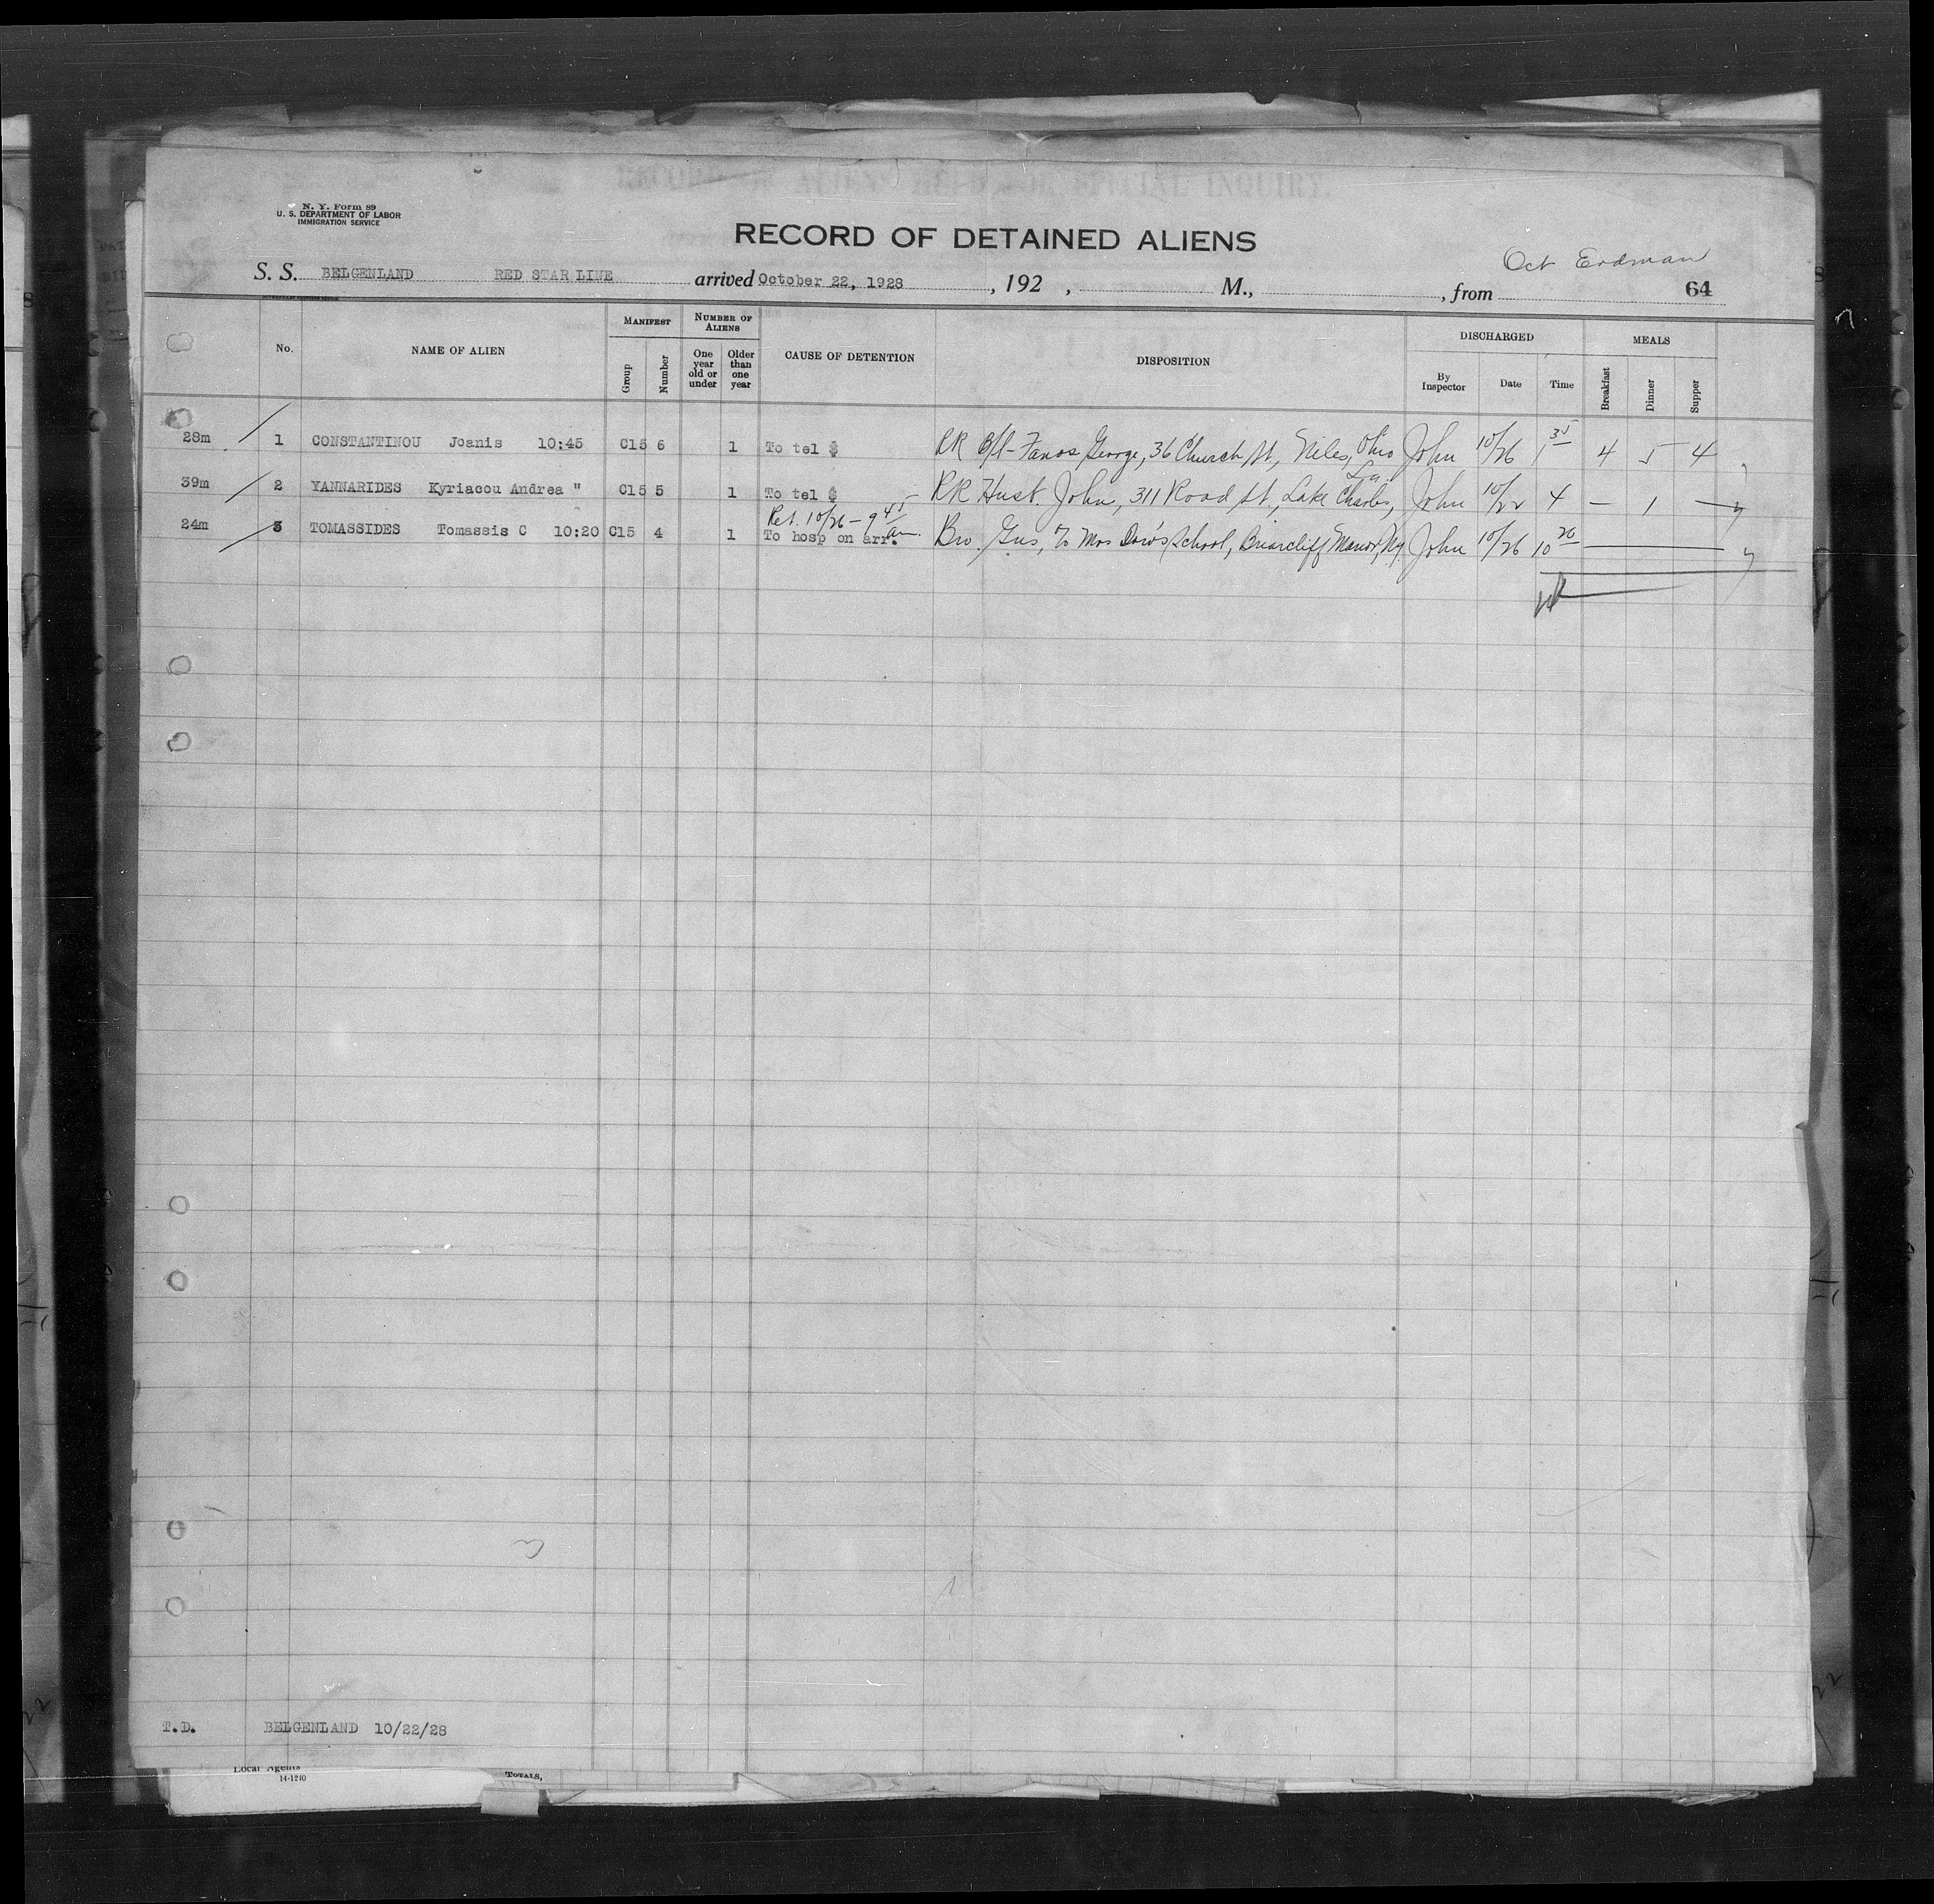 RECORD OF ALIENS HELD FOR SPECIAL INQUIRY.
N. Y. Form 89
U. S. DEPARTMENT OF LABOR
IMMIGRATION SERVICE
RECORD OF DETAINED ALIENS
Oct Erdman
S. S. BELGENLAND RED STAR LINE arrived October 22, 1928, 192 , M., , from 64
No. NAME OF ALIEN MANIFEST Group Number NUMBER OF ALIENS One year old or under Older than one year CAUSE OF DETENTION DISPOSITION DISCHARGED By Inspector Date Time MEALS Breakfast Dinner Supper
28m 1 CONSTANTINOU Joanis 10:45 C15 6 1 To tel $ RR B/l- Fanos George, 36 Church St., Niles, Ohio John 10/26 1 35 4 5 4
39m 2 YANNARIDES Kyriacou Andrea " C15 5 1 To tel $ RR Husb. John, 311 Road St., Lake Charles, La. John 10/22 4 — 1 —
Ret. 10/26 - 9 45 am.
24m 3 TOMASSIDES Tomassis C 10:20 C15 4 1 To hosp on arr. Bro. Gus, % Mrs Dow's School, Briarcliff Manor, Ny. John 10/26 10 20
T.D. BELGENLAND 10/22/28
Local Agents
14-1240
TOTALS,